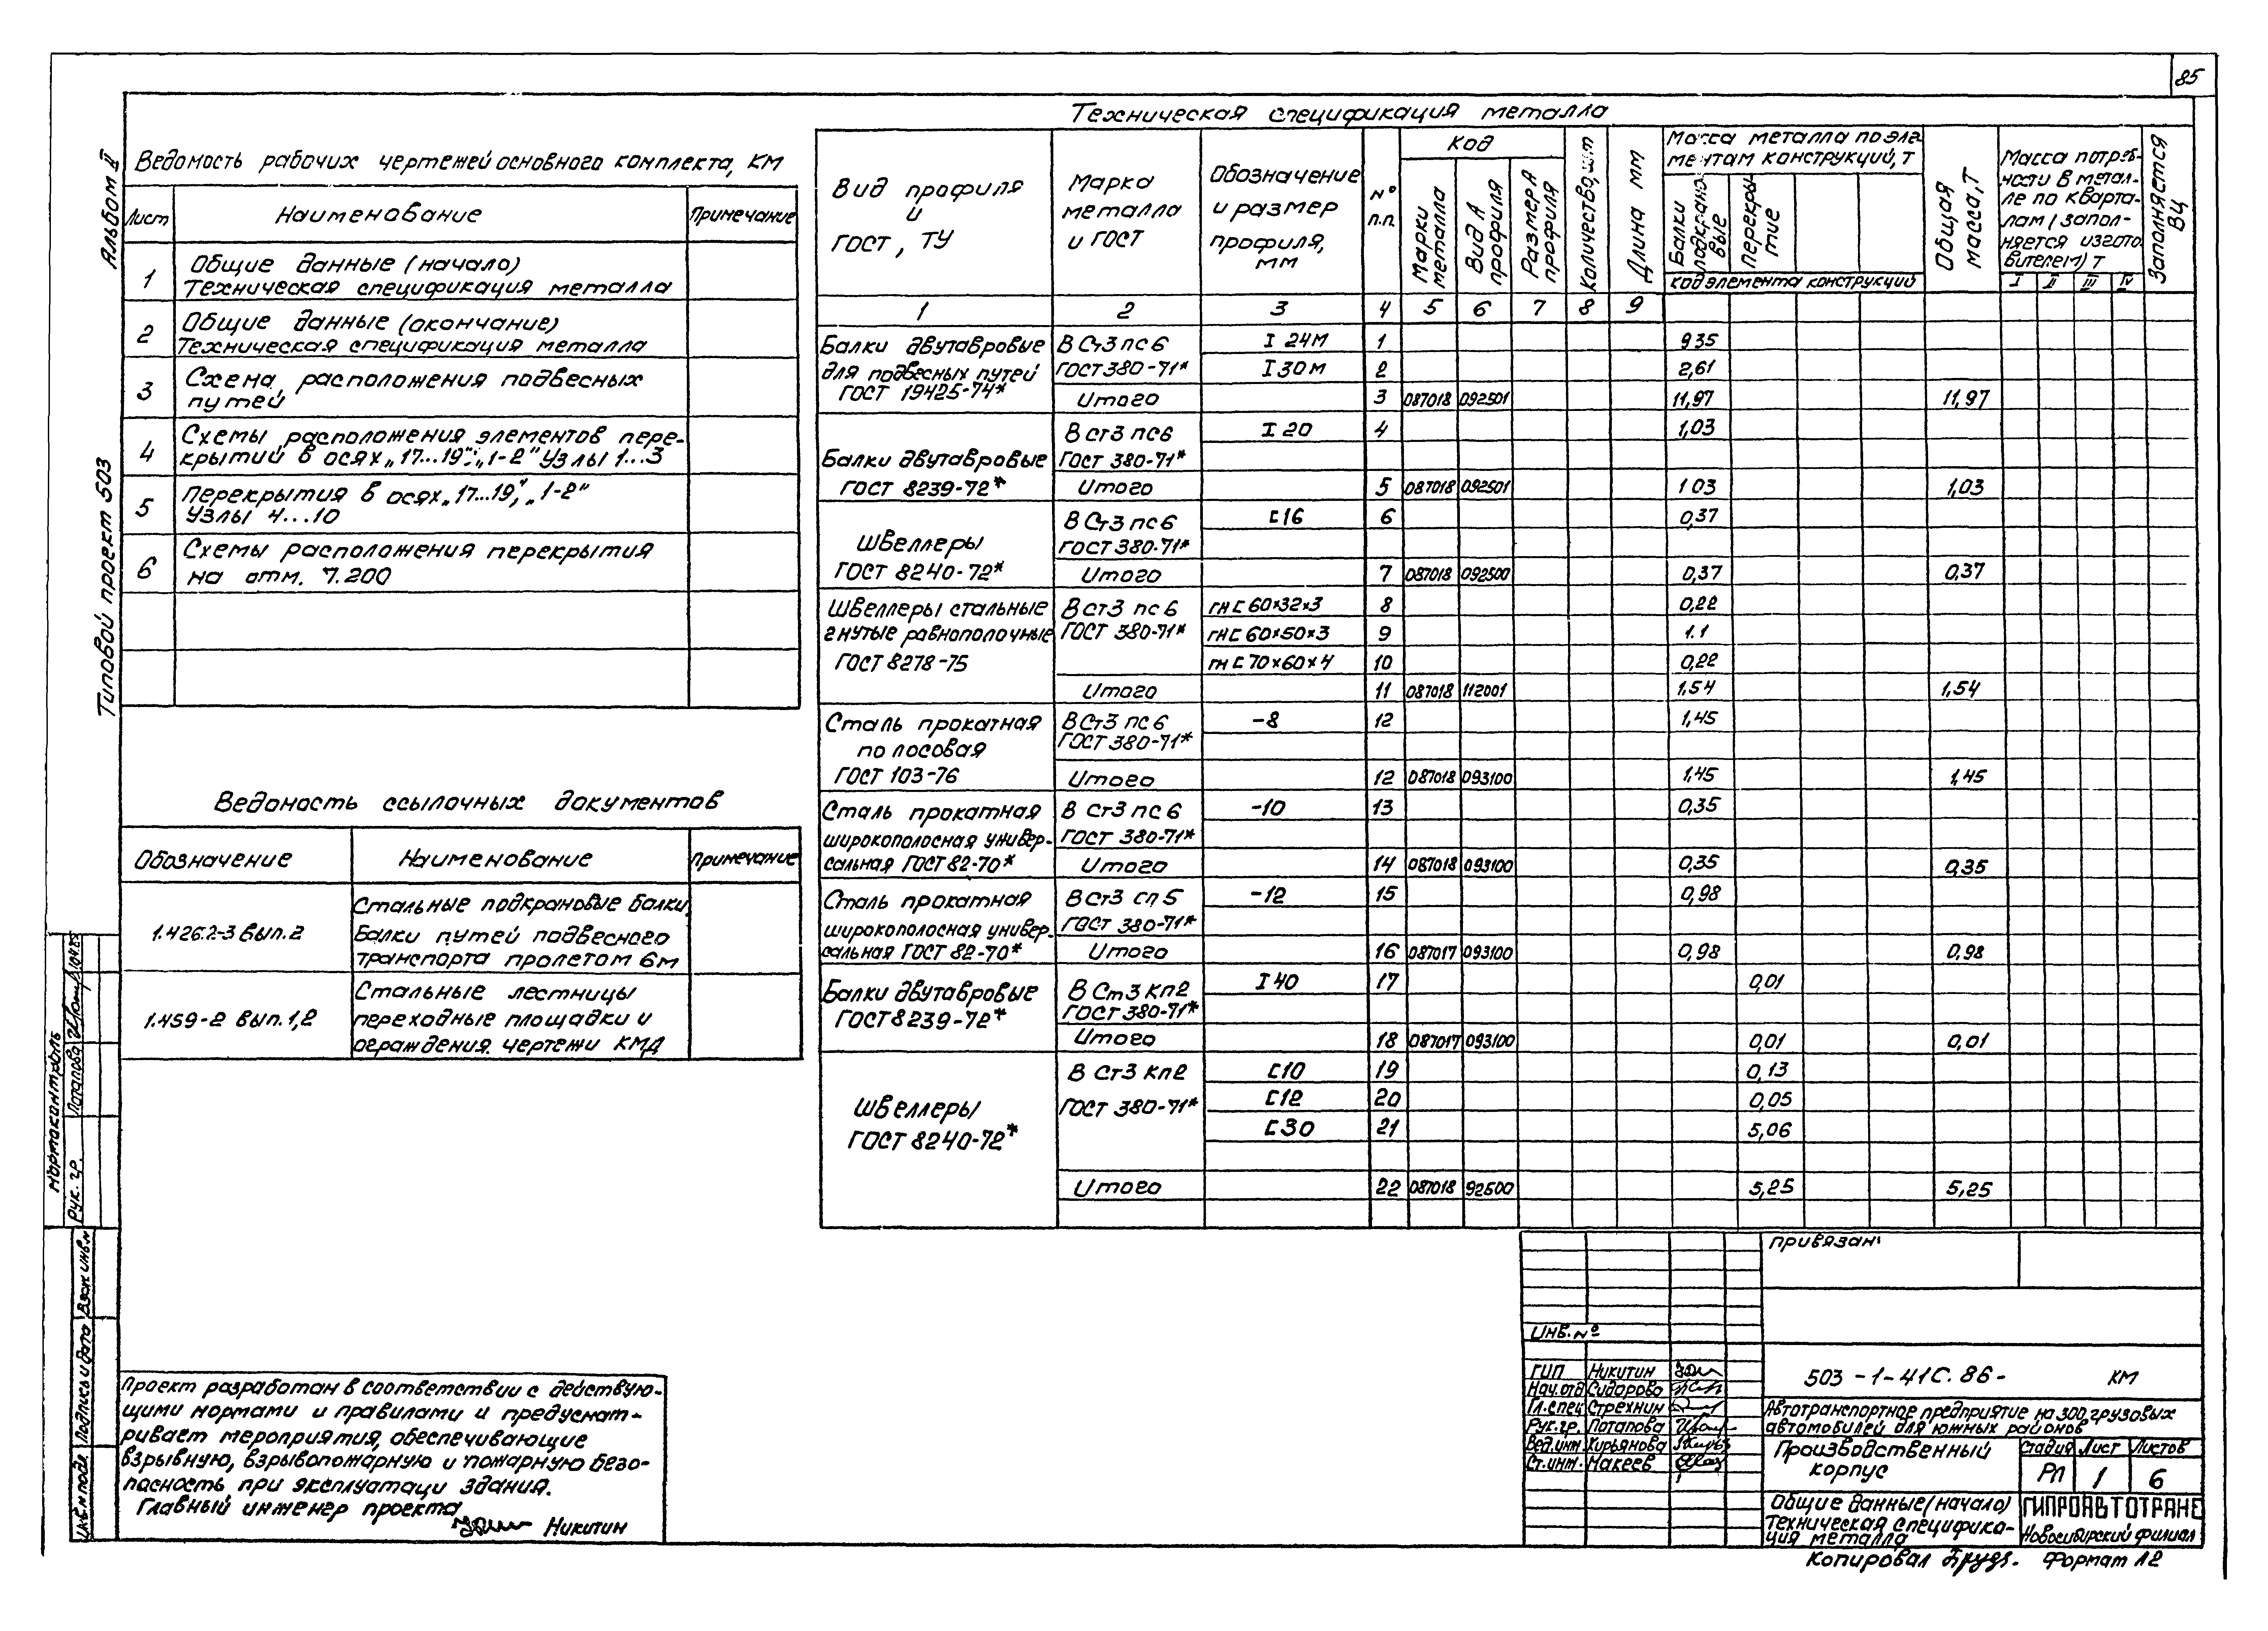 85
Альбом II
Типовой проект 503
Ведомость рабочих чертежей основного комплекта, КМ
Лист Наименование Примечание
1 Общие данные (начало)
Техническая спецификация металла
2 Общие данные (окончание)
Техническая спецификация металла
3 Схема расположения подвесных
путей
4 Схемы расположения элементов пере-
крытий в осях „17...19"; „1-2" Узлы 1...3
5 Перекрытия в осях „17...19", „1-2"
Узлы 4...10
6 Схемы расположения перекрытия
на отм. 7.200
Ведомость ссылочных документов
Обозначение Наименование Примечание
1.426.2-3 вып. 2 Стальные подкрановые балки,
Балки путей подвесного
транспорта пролетом 6м
1.459-2 вып. 1,2 Стальные лестницы
переходные площадки и
ограждения. чертежи КМД
Техническая спецификация металла
Вид профиля
и
ГОСТ, ТУ
Марка
металла
и ГОСТ
Обозначение
и размер
профиля,
мм
№
п.п.
Код
Марки
металла
Вид А
профиля
Размер А
профиля
Количество, шт
Длина мм
Масса металла по эле-
ментам конструкций, т
Балки
подкрано
вые
перекры-
тие
код элемента конструкций
Общая
масса, Т
Масса потреб-
ности в метал-
ле по кварта-
лам (запол-
няется изгото
вителем) Т
I II III IV
Заполняется
ВЦ
1 2 3 4 5 6 7 8 9
Балки двутавровые В Ст3 пс 6 I 24М 1 935
для подвесных путей ГОСТ 380-71* I 30 М 2 2,61
ГОСТ 19425-74* Итого 3 087018 092501 11,97 11,97
В ст3 пс6 I 20 4 1,03
Балки двутавровые ГОСТ 380-71*
ГОСТ 8239-72* Итого 5 087018 092501 1 03 1,03
В Ст3 пс 6 [16 6 0,37
Швеллеры ГОСТ 380-71*
ГОСТ 8240-72* Итого 7 087018 092500 0,37 0,37
Швеллеры стальные В ст3 пс 6 гн [ 60×32×3 8 0,22
гнутые равнополочные ГОСТ 380-71* гн [ 60×50×3 9 1.1
ГОСТ 8278-75 гн [ 70×60×4 10 0,22
Итого 11 087018 112001 1,54 1,54
Сталь прокатная В Ст3 пс 6 -8 12 1,45
полосовая ГОСТ 380-71*
ГОСТ 103-76 Итого 12 087018 093100 1,45 1,45
Сталь прокатная В Ст3 пс 6 -10 13 0,35
широкополосная универ- ГОСТ 380-71*
сальная ГОСТ 82-70* Итого 14 087018 093100 0,35 0,35
Сталь прокатная В Ст3 сп 5 -12 15 0,98
широкополосная универ- ГОСТ 380-71*
сальная ГОСТ 82-70* Итого 16 087017 093100 0,98 0,98
Балки двутавровые В Ст3 Кп2 I 40 17 0,01
ГОСТ 8239-72* ГОСТ 380-71*
Итого 18 087017 093100 0,01 0,01
В Ст3 Кп2 [10 19 0,13
Швеллеры ГОСТ 380-71* [12 20 0,05
ГОСТ 8240-72* [30 21 5,06
Итого 22 087018 92500 5,25 5,25
Нормоконтроль
Рук. гр. Потапова
Инв.№ подл. Подпись и дата Взам. инв.№
Проект разработан в соответствии с действую-
щими нормами и правилами и предусмат-
ривает мероприятия, обеспечивающие
взрывную, взрывопожарную и пожарную безо-
пасность при эксплуатаци здания.
Главный инженер проекта
Никитин
Привязан:
Инв. №
ГИП Никитин
Нач.отд Сидорова
Гл.спец Стрехнин
Рук.гр. Потапова
Вед.инж. Кирьянова
Ст.инж. Макеев
503-1-41С.86- КМ
Автотранспортное предприятие на 300 грузовых
автомобилей для южных районов
Производственный
корпус
Стадия Лист Листов
РП 1 6
Общие данные (начало)
техническая специфика-
ция металла
ГИПРОАВТОТРАНС
Новосибирский филиал
Копировал Формат А2